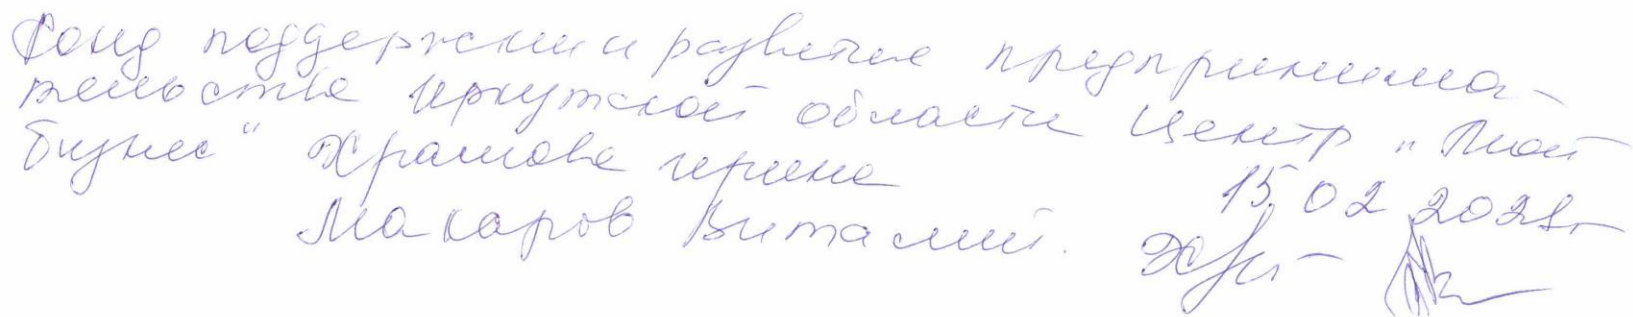 Фонд поддержки и развития предпринима-
тельства Иркутской области Центр "Мой
бизнес" Храмова Ирина
15.02.2021г
Макаров Виталий.